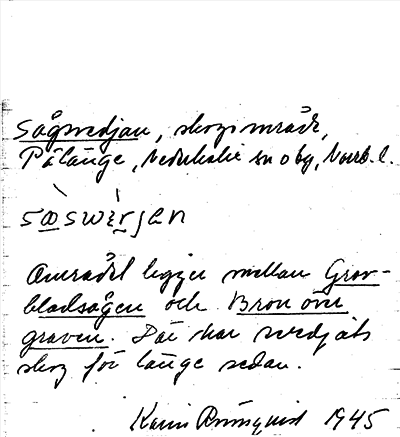 Sågsvedjan, skogsområde,
Pålänge, Nederkalix sn o bg, Norrb. l.
Området ligger mellan Grov-
bladsågen och Bron över
graven. Där har svedjats
skog för länge sedan.
Karin Rönnqvist 1945